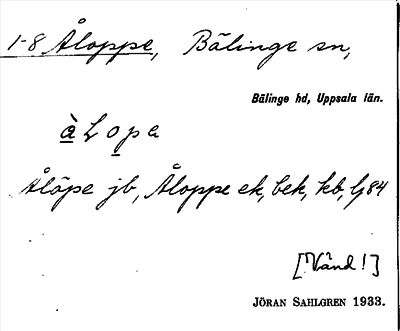 1-8 Åloppe, Bälinge sn,
Bälinge hd, Uppsala län.
àLopa
Ålöpe jb, Åloppe ek, bek, kb,
[Vänd!]
JÖRAN SAHLGREN 1933.